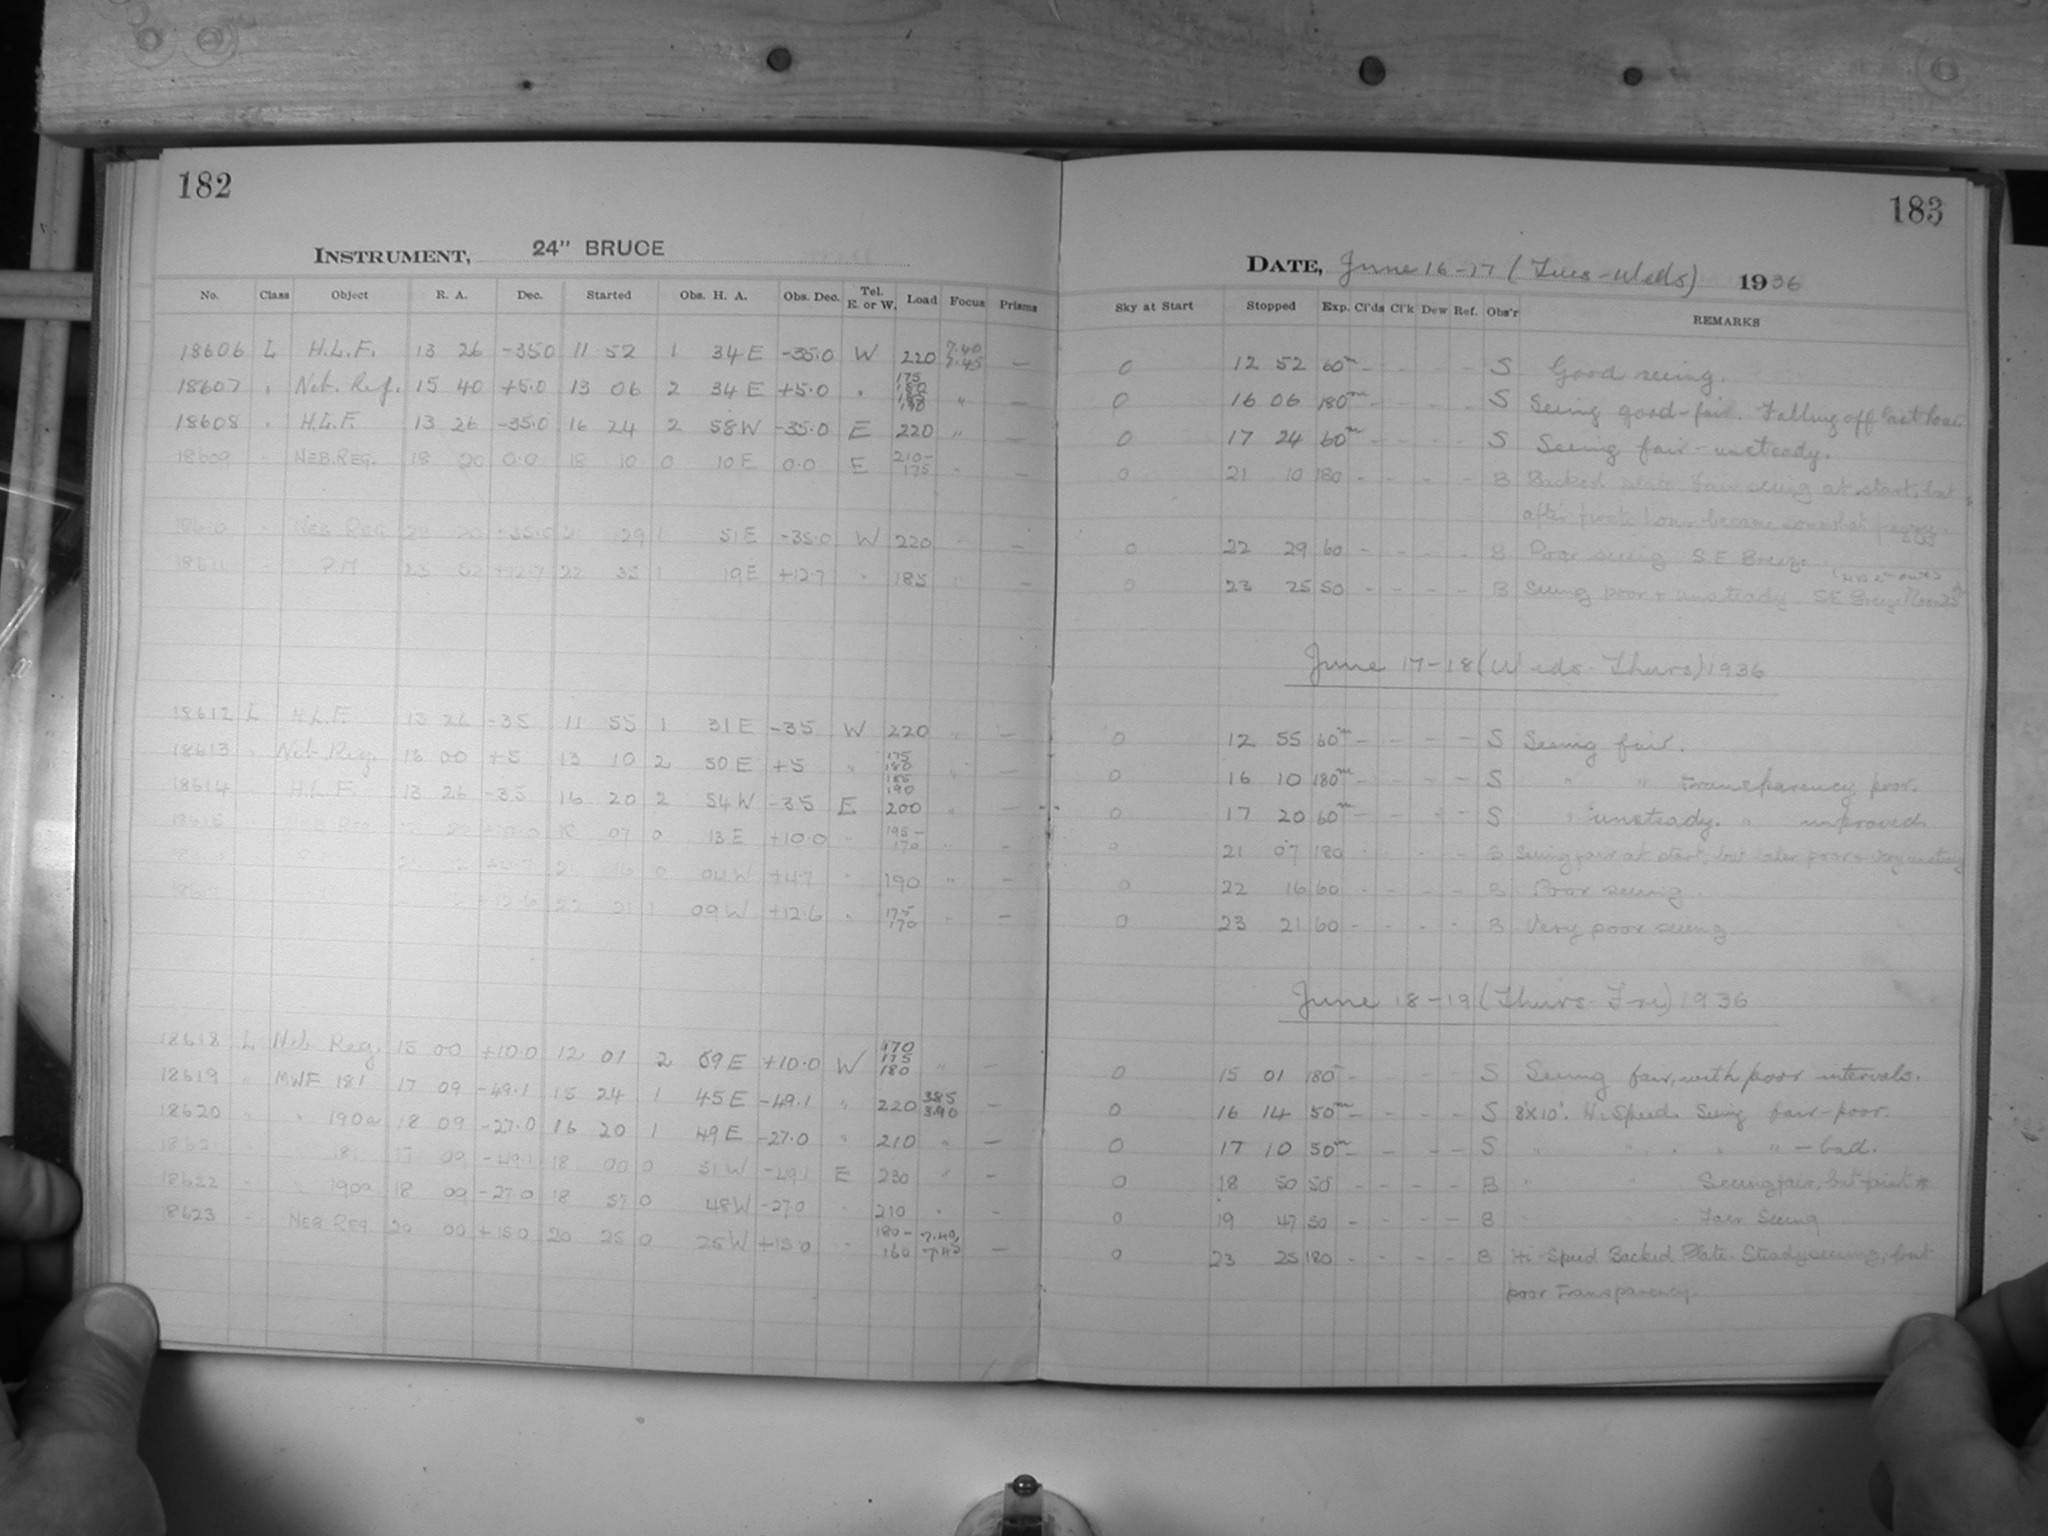 182
INSTRUMENT, 24" BRUCE
No. Class Object R. A. Dec. Started Obs. H. A. Obs. Dec. Tel. E. or W. Load Focus Prisms
18606 L H.L.F. 13 26 -35.0 11 52 1 34 E -35.0 W 220 7.40 7.45 —
18607 " Neb. Reg. 15 40 +5.0 13 06 2 34 E +5.0 " 175 190 " —
18608 " H.L.F. 13 26 -35.0 16 24 2 58 W -35.0 E 220 " —
18609 " NEB. REG. 18 20 0.0 18 10 0 10 E 0.0 E 210- 175 " —
18610 " NEB REG 20 -35.0 21 29 1 51 E -35.0 W 220 " —
18611 23 52 +12.7 22 35 1 19 E +12.7 " 185 " —
18612 L H.L.F. 13 26 -35 11 55 1 31 E -35 W 220 " —
18613 " Neb Reg. 16 00 +5 13 10 2 50 E +5 " 175 180 185 190 " —
18614 " H.L.F. 13 26 -35 16 20 2 54 W -35 E 200 " —
18615 NEB REG 18 07 0 13 E +10.0 " 195- 170 " —
21 16 0 04 W +4.7 " 190 " —
18617 +12.6 22 21 1 09 W +12.6 " 175 170 " —
18618 L Neb Reg. 15 00 +10.0 12 01 2 59 E +10.0 W 170 175 180 " —
18619 " MWF 181 17 09 -49.1 15 24 1 45 E -49.1 " 220 385 390 —
18620 " " 190a 18 09 -27.0 16 20 1 49 E -27.0 " 210 " —
18621 " 181 17 09 -49.1 18 00 0 51 W -49.1 E 230 " —
18622 " " 190a 18 09 -27.0 18 57 0 48 W -27.0 " 210 " —
18623 " NEB REG. 20 00 +15.0 20 25 0 25 W +15.0 " 180- 160 7.40, 7.45 —
183
DATE, June 16-17 (Tues-Weds) 1936
Sky at Start Stopped Exp. Cl'ds Cl'k Dew Ref. Obs'r REMARKS
0 12 52 60m - - - - S Good seeing.
0 16 06 180m - - - - S Seeing good-fair. Falling off last hour.
0 17 24 60m - - - - S Seeing fair - unsteady.
0 21 10 180 - - - - B Backed plate. Fair seeing at start, but
after first hour became somewhat
0 22 29 60 - - - - B Poor seeing S E Breeze
0 23 25 50 - - - - B Seeing poor + unsteady S E Breeze
June 17-18 (Weds-Thurs) 1936
0 12 55 60m - - - - S Seeing fair.
0 16 10 180m - - - - S " " Transparency poor.
0 17 20 60m - - - - S " unsteady. " improved.
0 21 07 180 - - - - B Seeing fair at start, but later poor + very unsteady
0 22 16 60 - - - - B Poor seeing.
0 23 21 60 - - - - B Very poor seeing.
June 18-19 (Thurs-Fri) 1936
0 15 01 180 - - - - S Seeing fair, with poor intervals.
0 16 14 50m - - - - S 8"X10". Hi Speed. Seeing fair-poor.
0 17 10 50m - - - - S " " " " " - bad.
0 18 50 50 - - - - B " " Seeing fair, but faint *
0 19 47 50 - - - - B " " Fair Seeing
0 23 25 180 - - - - B Hi-Speed Backed Plate. Steady seeing, but
poor transparency.